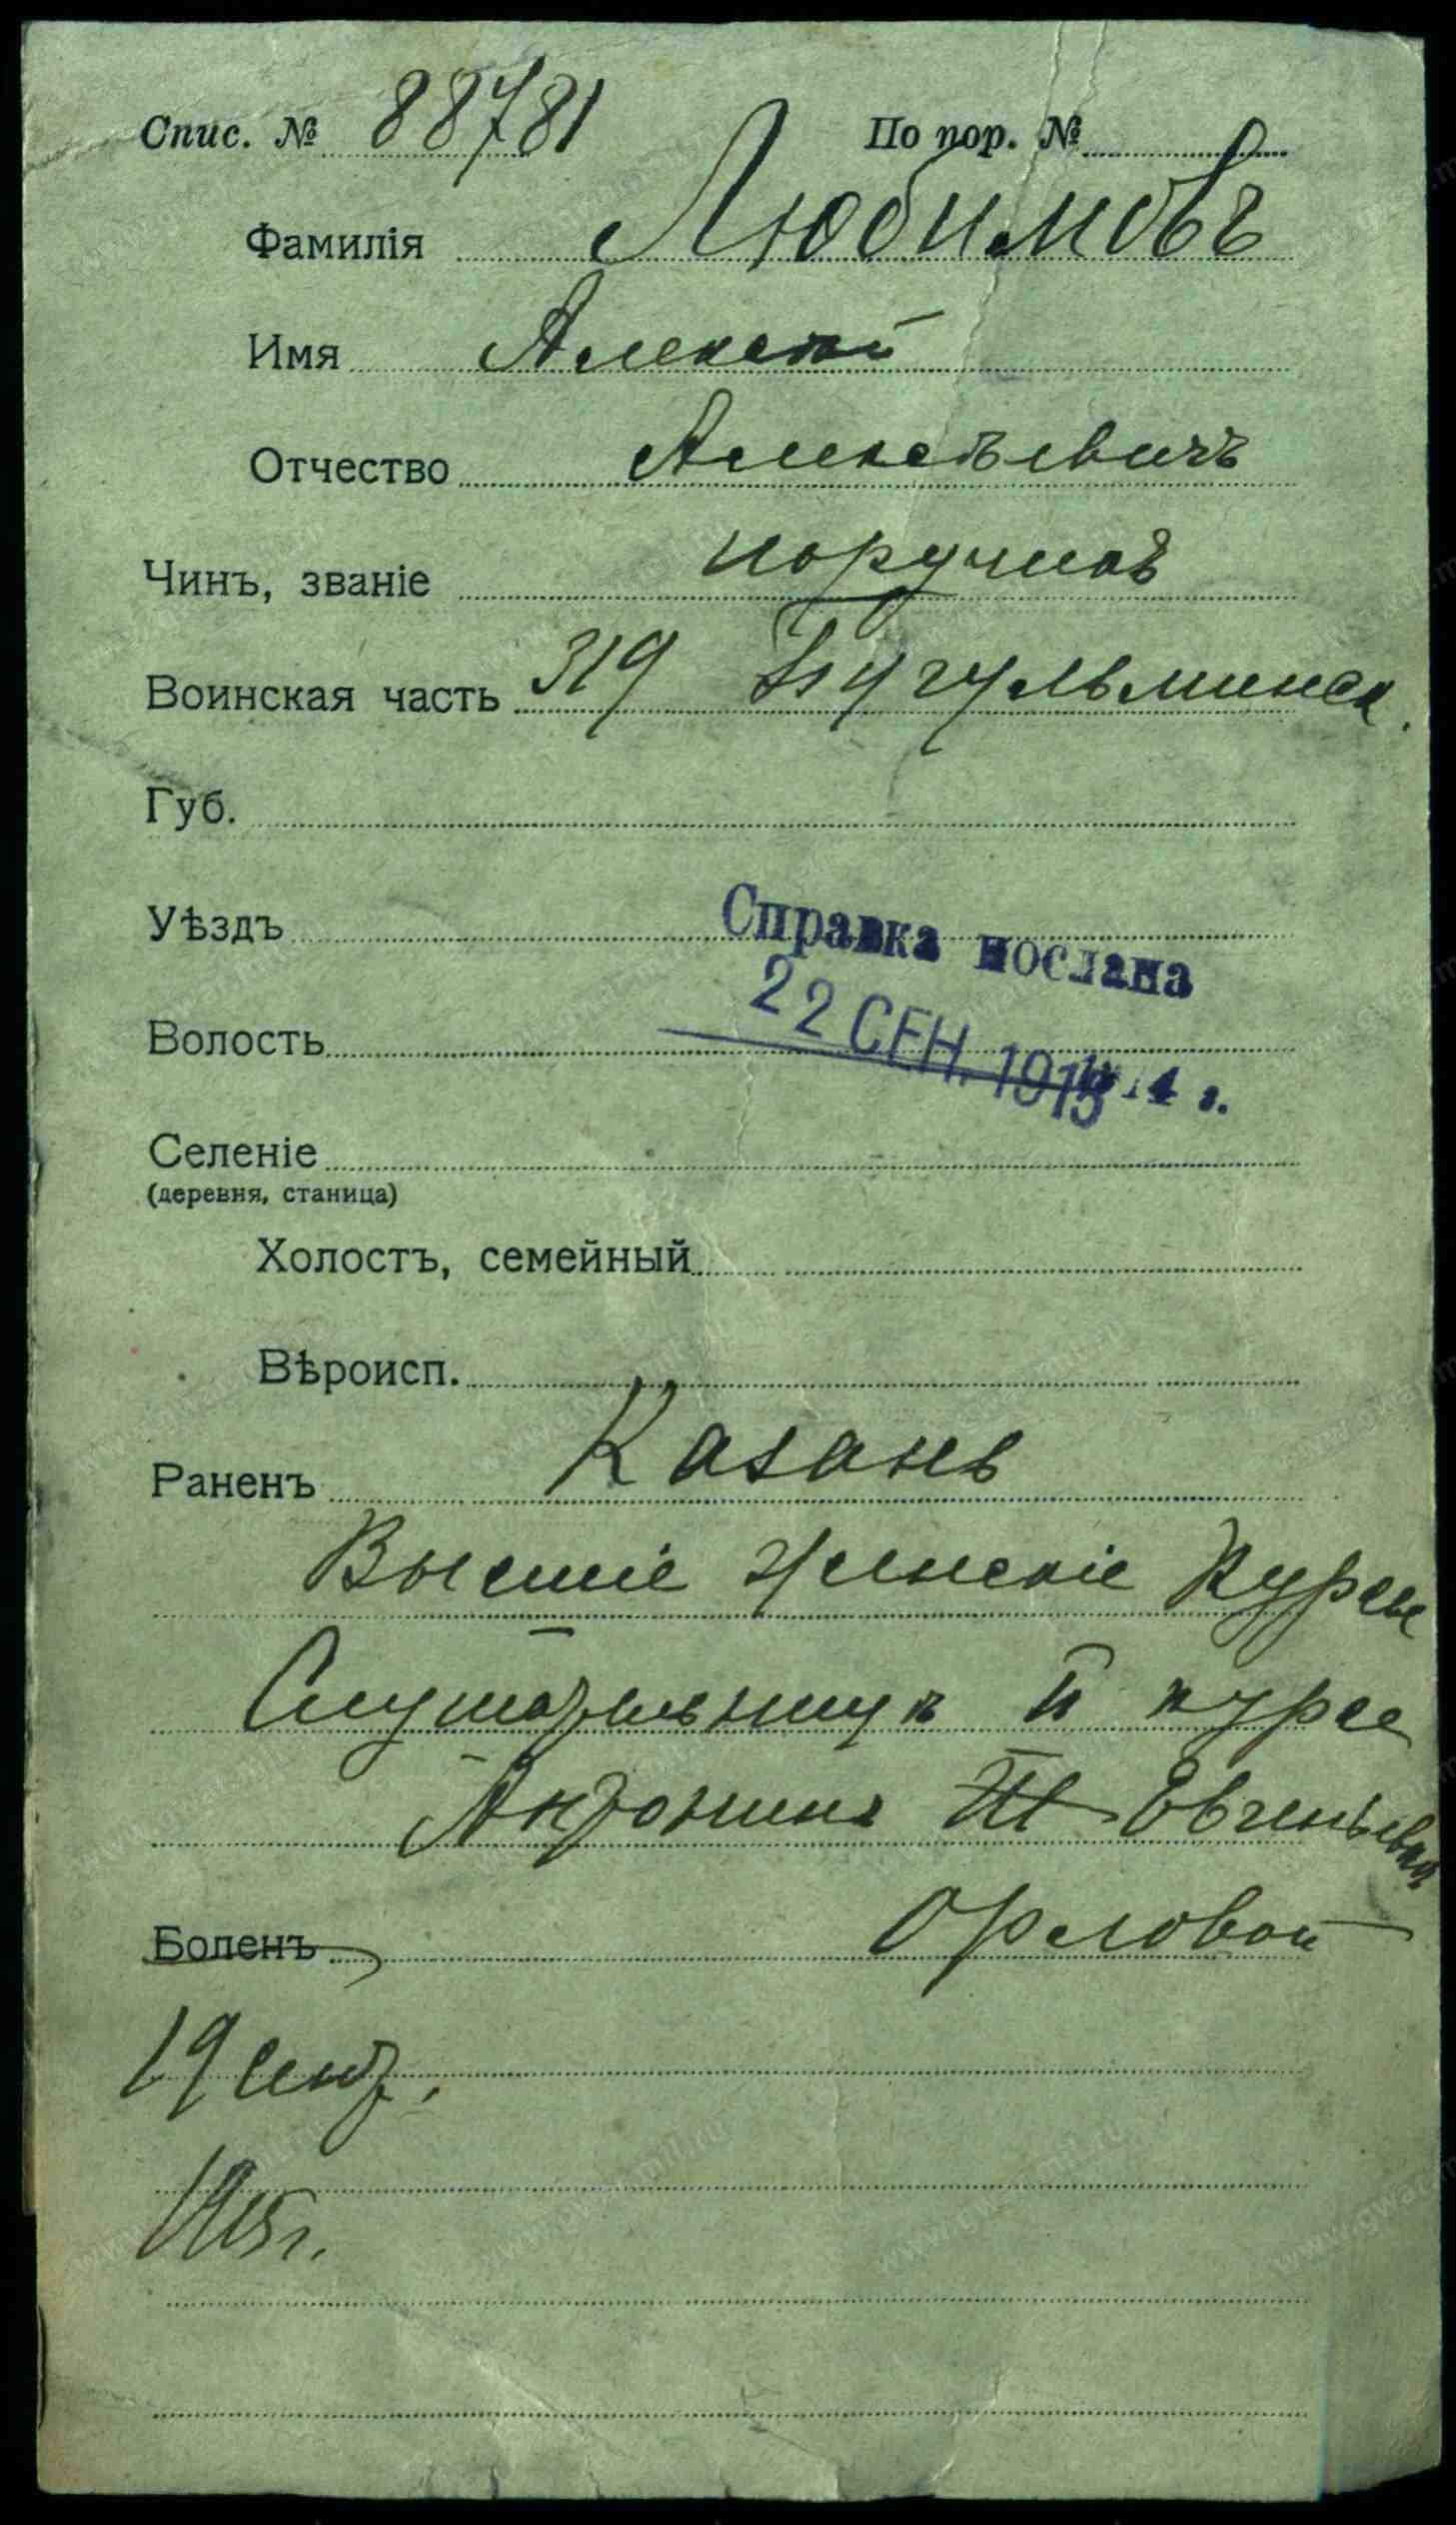 Спис. № 88781 По пор. №
Фамилія Любимовъ
Имя Алексѣй
Отчество Алексѣевичъ
Чинъ, званіе поручикъ
Воинская часть 319 Бугульминск.
Губ.
Уѣздъ
Справка послана
Волость
22 СЕН. 1915 г.
Селеніе
(деревня, станица)
Холостъ, семейный
Вѣроисп.
Раненъ Казань
Высшіе Женскіе Курсы
Слушательницѣ II курса
Антонинѣ Евгеньевнѣ
Боленъ Орловой
19 Сент.
1915 г.